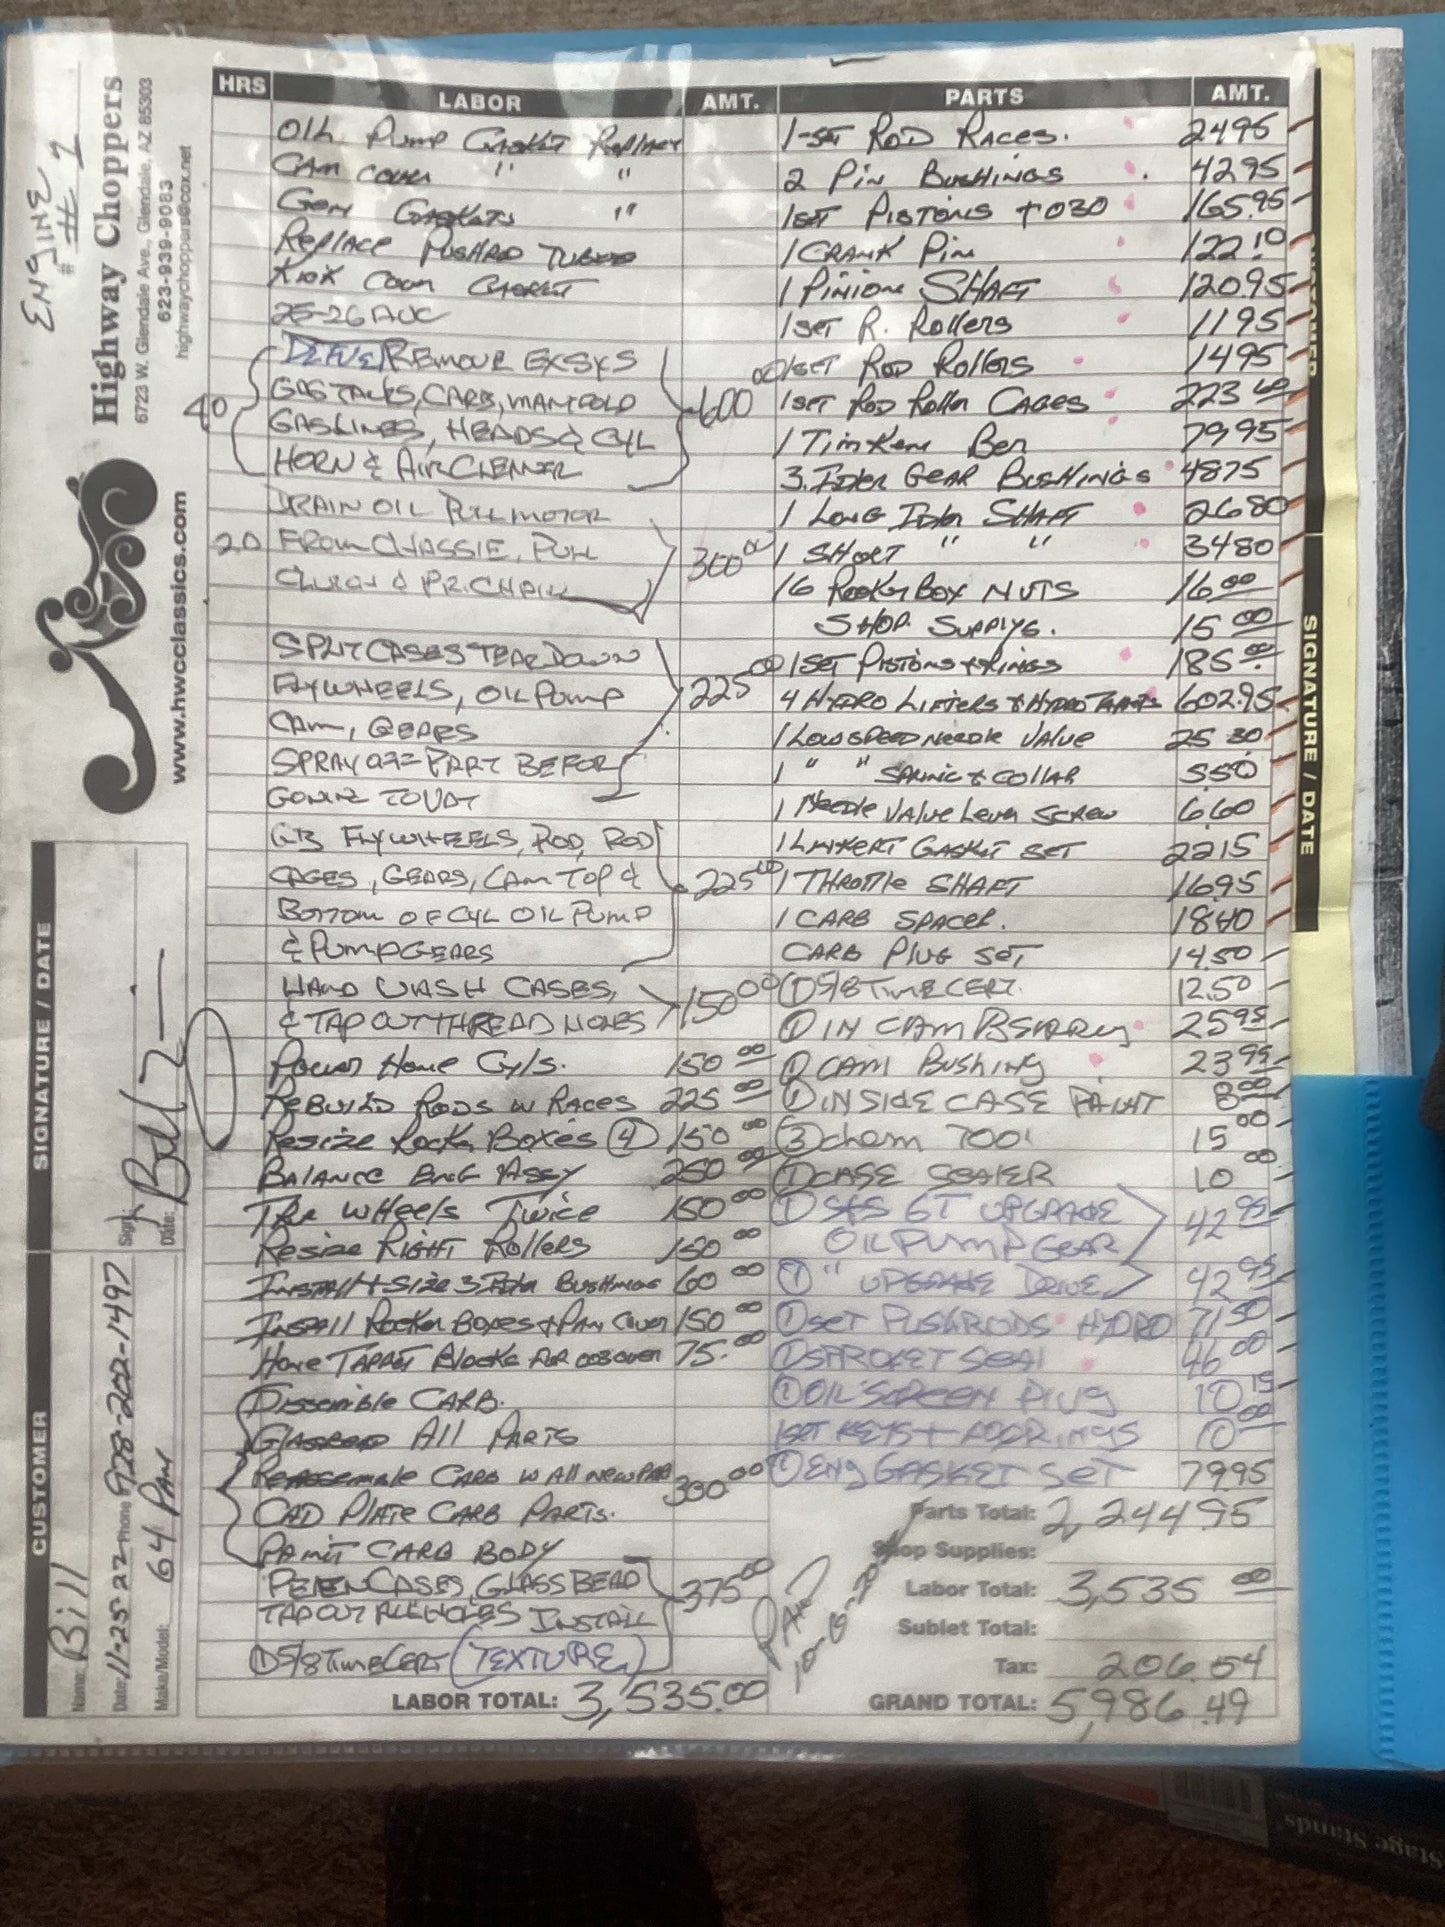 ENGINE
# 1
Highway Choppers
6723 W. Glendale Ave., Glendale, AZ 85303
623-939-9083
highwaychoppers@cox.net
www.hwcclassics.com
SIGNATURE / DATE
Sign:
Date:
CUSTOMER
Name: Bill
Date: 11-25-22 Phone 928-202-1497
Make/Model: 64 PAN
HRS LABOR AMT.
OIL Pump Gasket Replace
CAM COVER " "
Gen Gaskets "
Replace Pushrod Tubes
Kick Cover Gasket
25-26 AUG
REMOVE EX SYS
40 GAS TANKS, CARB, MANIFOLD 600 00
GASLINES, HEADS & CYL
HORN & AIR CLEANER
DRAIN OIL PULL MOTOR
20 FROM CHASSIE, PULL 300 00
CLUTCH & PR. CHAIN
SPLIT CASES TEAR DOWN
FLYWHEELS, OIL PUMP 225 00
CAM, GEARS
SPRAY OFF PART BEFOR
GOING TO VAT
GB FLYWHEELS, ROD, ROD
CAGES, GEARS, CAM TOP & 225 00
BOTTOM OF CYL OIL PUMP
& PUMP GEARS
HAND WASH CASES, 150 00
& TAP OUT THREAD HOLES
Power Hone Cyls. 150 00
REBUILD RODS W RACES 225 00
Resize Rocker Boxes (4) 150 00
BALANCE ENG ASSY 250 00
TRU WHEELS TWICE 150 00
Resize RIGHT Rollers 150 00
INSTALL + Size 3 Idler Bushings 60 00
INSTALL Rocker Boxes + Pan Cover 150 00
Hone TAPPET Blocks FOR 008 OVER 75.00
Dissemble CARB.
Glassbead All PARTS
Reassemble CARB W All NEW PAR 300 00
CAD PLATE CARB PARTS.
PAINT CARB BODY
PEEN CASES, GLASS BEAD 375 00
TAP OUT ALL HOLES INSTALL
(1) 5/8 TIMECERT (TEXTURE)
LABOR TOTAL: 3,535.00
PARTS AMT.
1-SET ROD RACES. 24 95
2 Pin BUSHINGS 42 95
1 SET PISTONS +030 165.95
1 CRANK Pin 122.10
1 Pinion SHAFT 120 95
1 SET R. Rollers 11 95
1 SET ROD Rollers 14 95
1 SET ROD Roller CAGES 223
1 Timken Ber 79 95
3 Idler GEAR BUSHINGS 48 75
1 LONG Idler SHAFT 26 80
1 SHORT " " 34 80
16 ROCKER BOX NUTS 16 00
SHOP SUPPLYS. 15 00
1 SET PISTONS + RINGS 185 00
4 HYDRO LIFTERS + HYDRO 602.95
1 LOW SPEED NEEDLE VALVE 25 30
1 " " SPRING + COLLAR 5 50
1 NEEDLE VALVE LEVER SCREW 6 60
1 LINKERT GASKET SET 22 15
1 THROTTLE SHAFT 16 95
1 CARB SPACER. 18 40
CARB PLUG SET 14.50
(1) 5/8 TIMECERT. 12.50
(1) IN CAM BEARING 25 95
(1) CAM BUSHING 23 95
(1) INSIDE CASE PAINT 8 00
(3) CHAM TOOL 15 00
(1) CASE SEALER 10 00
(1) S+S GT UPGRADE
OIL PUMP GEAR 42 95
(1) " UPGRADE DRIVE 42 95
(1) SET PUSHRODS HYDRO 71 50
(1) SPROKET SEAL 46 00
(1) OIL SCREEN PLUG 10 15
1 SET KEYS + RINGS 10 00
(1) ENG GASKET SET 79 95
Parts Total: 2,244 95
Shop Supplies:
Labor Total: 3,535 00
Sublet Total:
Tax: 206.54
GRAND TOTAL: 5,986.49
PAID
SIGNATURE / DATE
Stage Stands